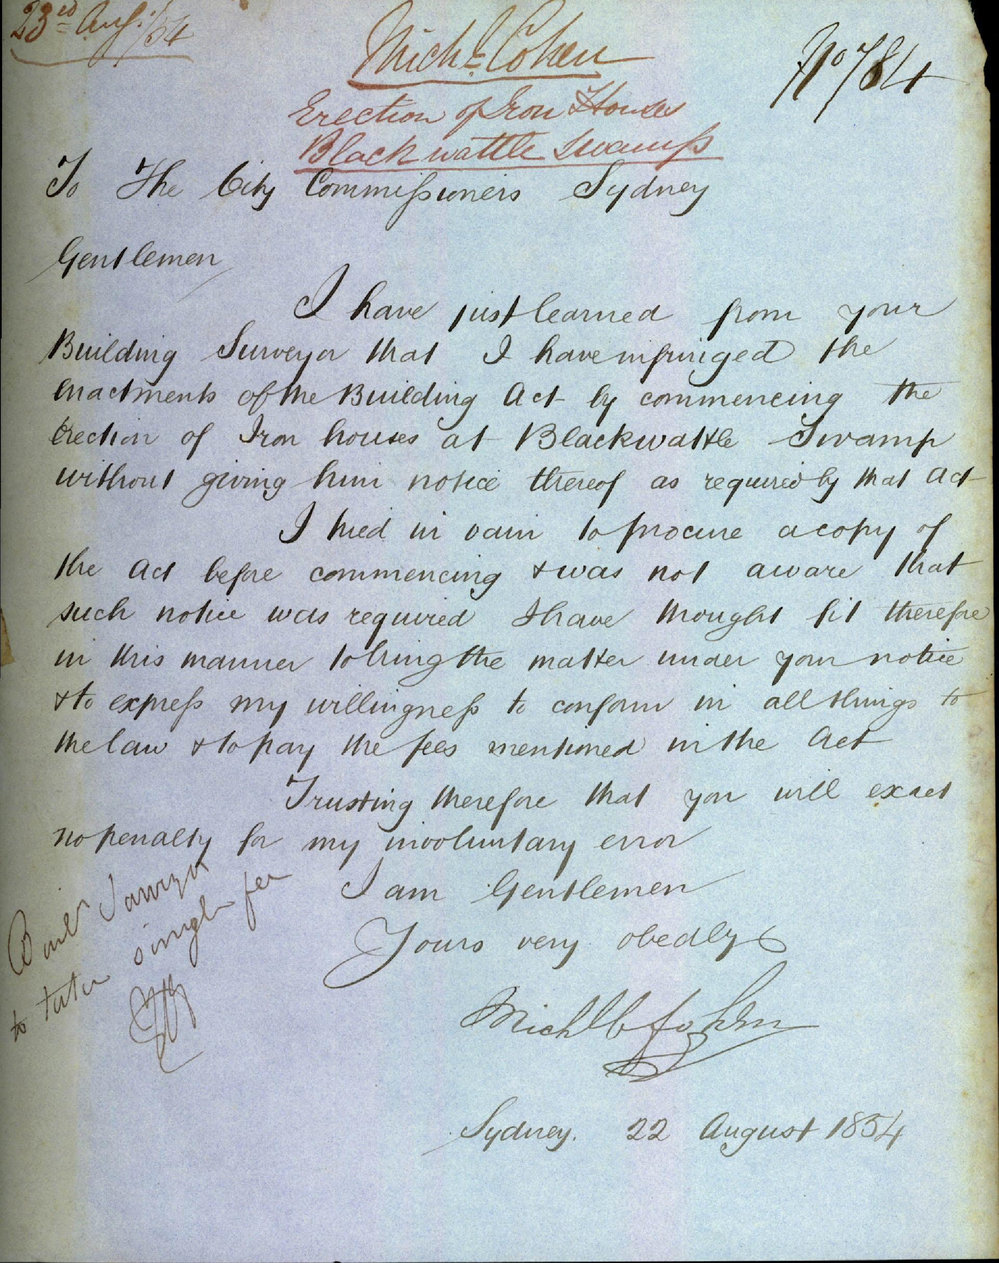 23rd Augt /54
Michl Cohen
No 784
Erection of Iron Houses
Blackwattle Swamp
To The City Commissioners Sydney
Gentlemen
I have just learned from your
Building Surveyor that I have infringed the
enactments of the Building Act by commencing the
Erection of Iron houses at Blackwattle Swamp
without giving him notice thereof as required by that Act
I tried in vain to procure a copy of
the Act before commencing & was not aware that
such notice was required I have thought fit therefore
in this manner to bring the matter under your notice
& to express my willingness to conform in all things to
the law & to pay the fees mentioned in the Act
Trusting therefore that you will exact
no penalty for my involuntary error
I am Gentlemen
Yours very obedly
Michl Cohen
Sydney. 22 August 1854
Buildr Surveyor
to take single fee